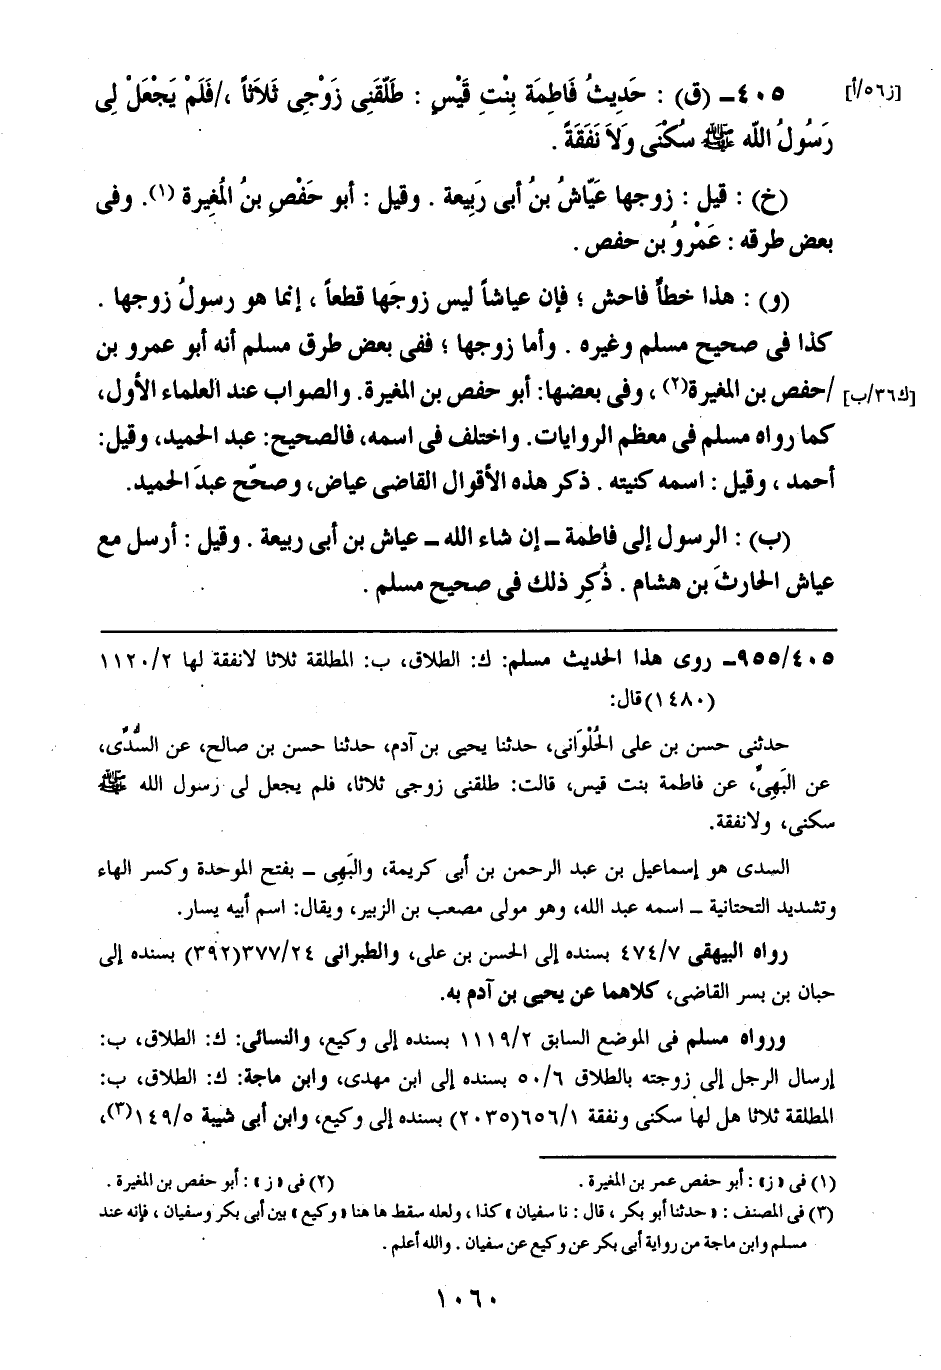 ٤٠٥ـ (ق) : حَديثُ فَاطِمَة بِنْتِ قَيْسٍ : طَلَّقَنِى زَوْجِى ثَلَاثَاً ،/فَلَمْ يَجْعَلْ لِى [ز٥٦/أ]
رَسُولُ اللّه ﷺ سُكْنَى وَلاَ نَفَقَةً .
(خ) : قيل : زوجها عَيَّاشُ بنُ أبى رَبِيعة . وقيل : أبو حَفْصِ بنُ المُغِيرة (١). وفى
بعض طرقه : عَمْرُو بن حفص .
(و) : هذا خطأ فاحش ؛ فإن عياشاً ليس زوجَها قطعاً ، إنما هو رسولُ زوجها .
كذا فى صحيح مسلم وغيره . وأما زوجها ؛ ففى بعض طرق مسلم أنه أبو عمرو بن
/حفص بن المغيرة(٢) ، وفى بعضها: أبو حفص بن المغيرة. والصواب عند العلماء الأول، [ك٣٦/ب]
كما رواه مسلم فى معظم الروايات. واختلف فى اسمه، فالصحيح: عبد الحميد، وقيل:
أحمد ، وقيل : اسمه كنيته . ذكر هذه الأقوال القاضى عياض، وصحّح عبدَ الحميد.
(ب) : الرسول إلى فاطمة ــ إن شاء الله ــ عياش بن أبى ربيعة . وقيل : أرسل مع
عياش الحارثَ بن هشام . ذُكِر ذلك فى صحيح مسلم .
٩٥٥/٤٠٥ـ روى هذا الحديث مسلم: ك: الطلاق، ب: المطلقة ثلاثا لانفقة لها ١١٢٠/٢
(١٤٨٠)قال:
حدثنى حسن بن على الحُلْوَانى، حدثنا يحيى بن آدم، حدثنا حسن بن صالح، عن السُّدِّى،
عن البَهِىِّ، عن فاطمة بنت قيس، قالت: طلقنى زوجى ثلاثا، فلم يجعل لى رسول الله ﷺ
سكنى، ولانفقة.
السدى هو إسماعيل بن عبد الرحمن بن أبى كريمة، والبَهِى ــ بفتح الموحدة وكسر الهاء
وتشديد التحتانية ــ اسمه عبد الله، وهو مولى مصعب بن الزبير، ويقال: اسم أبيه يسار.
رواه البيهقى ٤٧٤/٧ بسنده إلى الحسن بن على، والطبرانى ٣٧٧/٢٤(٣٩٢) بسنده إلى
حبان بن بسر القاضى، كلاهما عن يحيى بن آدم به.
ورواه مسلم فى الموضع السابق ١١١٩/٢ بسنده إلى وكيع، والنسائى: ك: الطلاق، ب:
إرسال الرجل إلى زوجته بالطلاق ٥٠/٦ بسنده إلى ابن مهدى، وابن ماجة: ك: الطلاق، ب:
المطلقة ثلاثا هل لها سكنى ونفقة ٦٥٦/١(٢٠٣٥) بسنده إلى وكيع، وابن أبى شيبة ١٤٩/٥(٣)،
(١) فى «ز» : أبو حفص عمر بن المغيرة . (٢) فى « ز » : أبو حفص بن المغيرة .
(٣) فى المصنف : « حدثنا أبو بكر ، قال : نا سفيان » كذا ، ولعله سقط ها هنا «وكيع» بين أبى بكر وسفيان ، فإنه عند
مسلم وابن ماجة من رواية أبى بكر عن وكيع عن سفيان . والله أعلم .
١٠٦٠